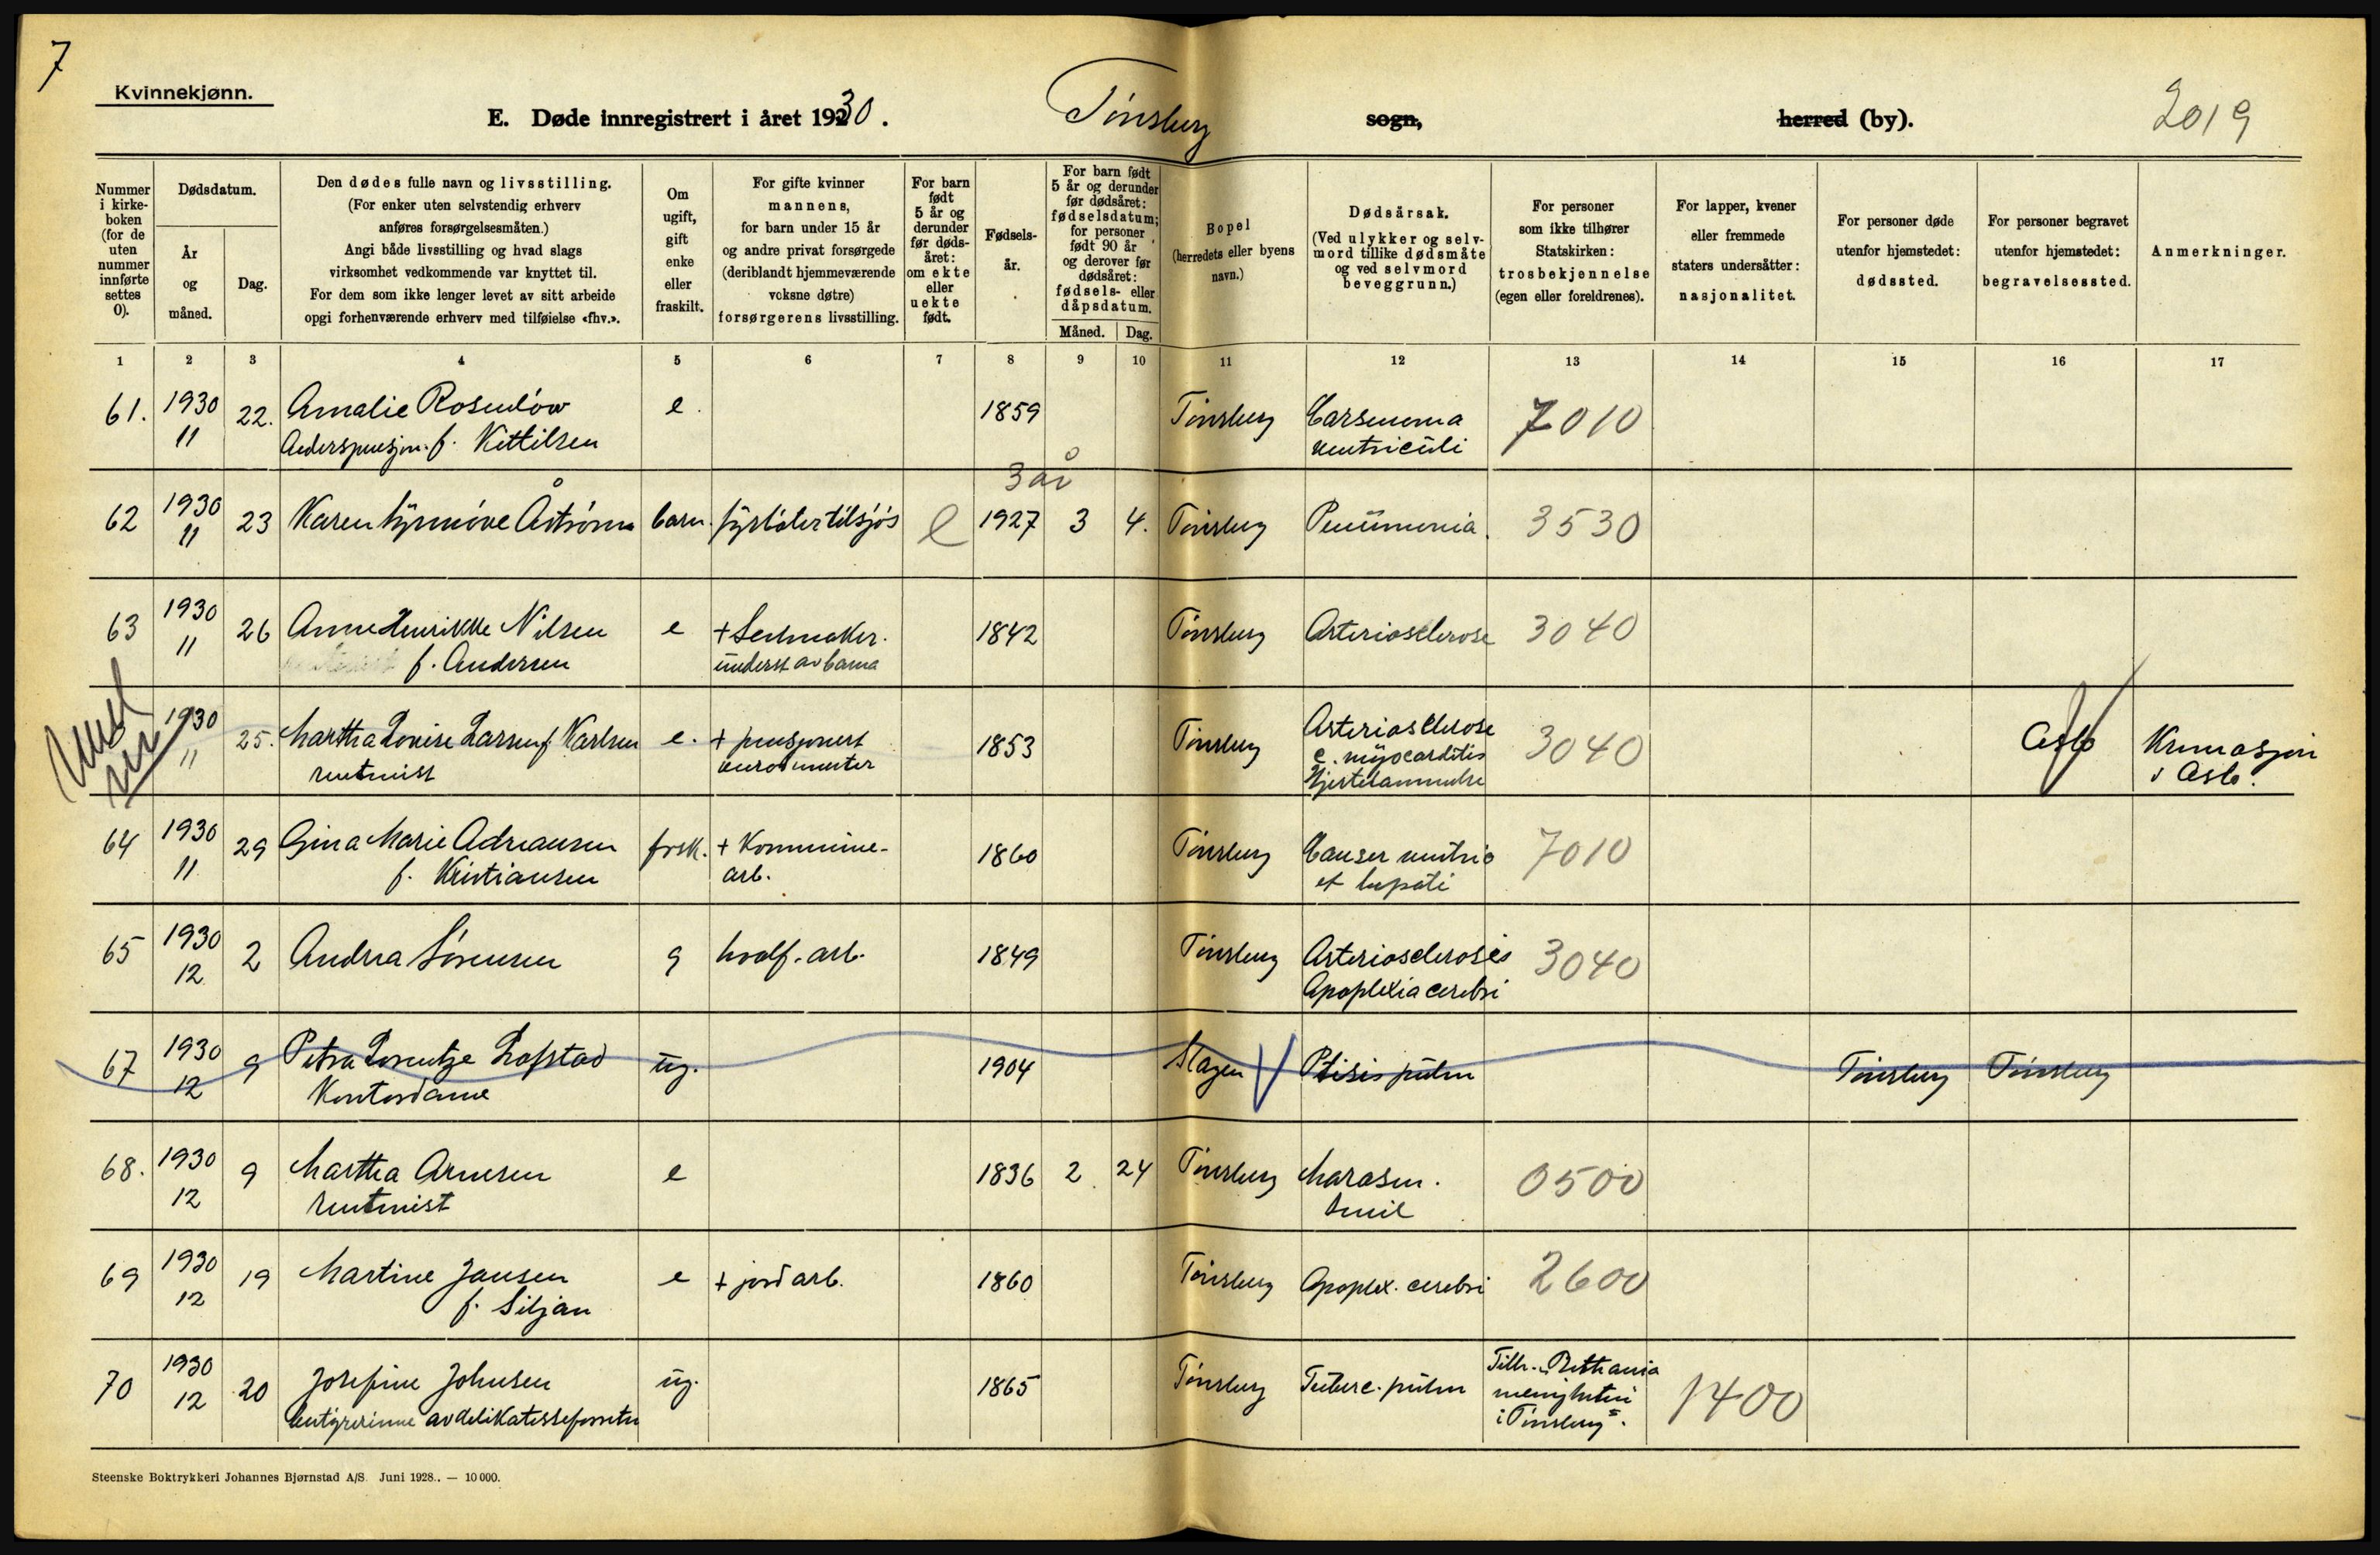 7
Kvinnekjønn.
E. Døde innregistrert i året 1930. Tønsberg sogn, herred (by). 2019
Nummer i kirke-boken (for de uten nummer innførte settes 0).
Dødsdatum.
År og måned.
Dag.
Den dødes fulle navn og livsstilling.
(For enker uten selvstendig erhverv
anføres forsørgelsesmåten.)
Angi både livsstilling og hvad slags
virksomhet vedkommende var knyttet til.
For dem som ikke lenger levet av sitt arbeide
opgi forhenværende erhverv med tilføielse «fhv.».
Om ugift, gift enke eller fraskilt.
For gifte kvinner
mannens,
for barn under 15 år
og andre privat forsørgede
(deriblandt hjemmeværende
voksne døtre)
forsørgerens livsstilling.
For barn født 5 år og derunder før døds-året: om ekte eller uekte født.
Fødsels-år.
For barn født 5 år og derunder før dødsåret: fødselsdatum; for personer født 90 år og derover før dødsåret: fødsels- eller dåpsdatum.
Måned. Dag.
Bopel
(herredets eller byens
navn.)
Dødsårsak.
(Ved ulykker og selv-
mord tillike dødsmåte
og ved selvmord
beveggrunn.)
For personer
som ikke tilhører
Statskirken:
trosbekjennelse
(egen eller foreldrenes).
For lapper, kvener
eller fremmede
staters undersåtter:
nasjonalitet.
For personer døde
utenfor hjemstedet:
dødssted.
For personer begravet
utenfor hjemstedet:
begravelsessted.
Anmerkninger.
1 2 3 4 5 6 7 8 9 10 11 12 13 14 15 16 17
61. 1930 22. Amalie e. 1859 Tønsberg 7010
11 f. Kittilsen ventriculi
3 år
62 1930 23 Karen Synnøve Åstrøm barn. fyrbøter tilsjøs e 1927 3 4. Tønsberg 3530
11
63 1930 26 Anne Henrikke Nilsen e + Seilmaker. 1842 Tønsberg Arteriosclerose 3040
11 f. Andersen underst av barna
1930 25. Martha Lovise Larsen f. Karlsen e. + pensjonert 1853 Tønsberg Arteriosclerose 3040 Oslo Kremasjon
11 rentenist c. myocarditis i Oslo.
Hjertelammelse
64 1930 29 Gina Marie Adriansen frsk. + Kommune- 1860 Tønsberg Cancer ventric 7010
11 f. Kristiansen arb. et hepati
65 1930 2 Andrea Sørensen g hvalf. arb. 1849 Tønsberg Arteriosclerosis 3040
12 Apoplexia cerebri
67 1930 9 Petra Lorentze Lofstad ug. 1904 Slagen V Ptisis pulm Tønsberg Tønsberg
12 Kontordame
68. 1930 9 Martha Arnesen e 1836 2 24 Tønsberg Marasm. 0500
12 rentenist senil
69 1930 19 Martine Jansen e + jordarb. 1860 Tønsberg Apoplex. cerebri 2600
12 f. Siljan
70 1930 20 Josefine Johnsen ug. 1865 Tønsberg Tuberc. pulm Tilh. "Bethania 1400
12 bestyrerinne av delikatesseforretn menigheten
i Tønsberg".
Steenske Boktrykkeri Johannes Bjørnstad A/S. Juni 1928.. — 10 000.